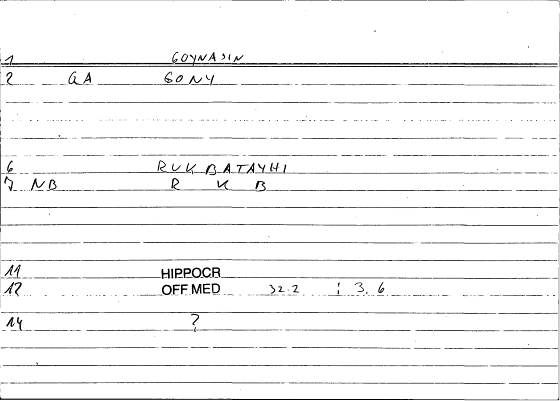 1 GOYNASIN
2 GA GONY
6 RUKBATAYHI
7 NB R K B
11 HIPPOCR
12 OFF MED 32.2 : 3.6
14 ?